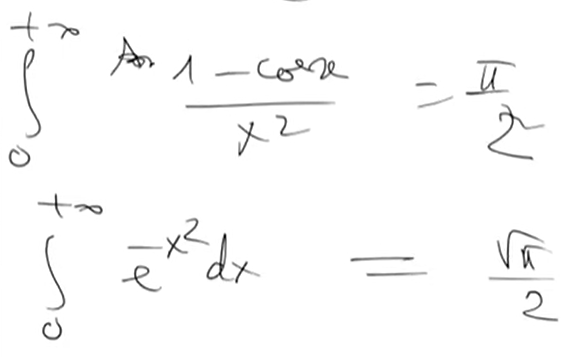 ∫₀^{+∞} (1 - cos x)/x² = π/2
∫₀^{+∞} e^{-x²} dx = √π/2